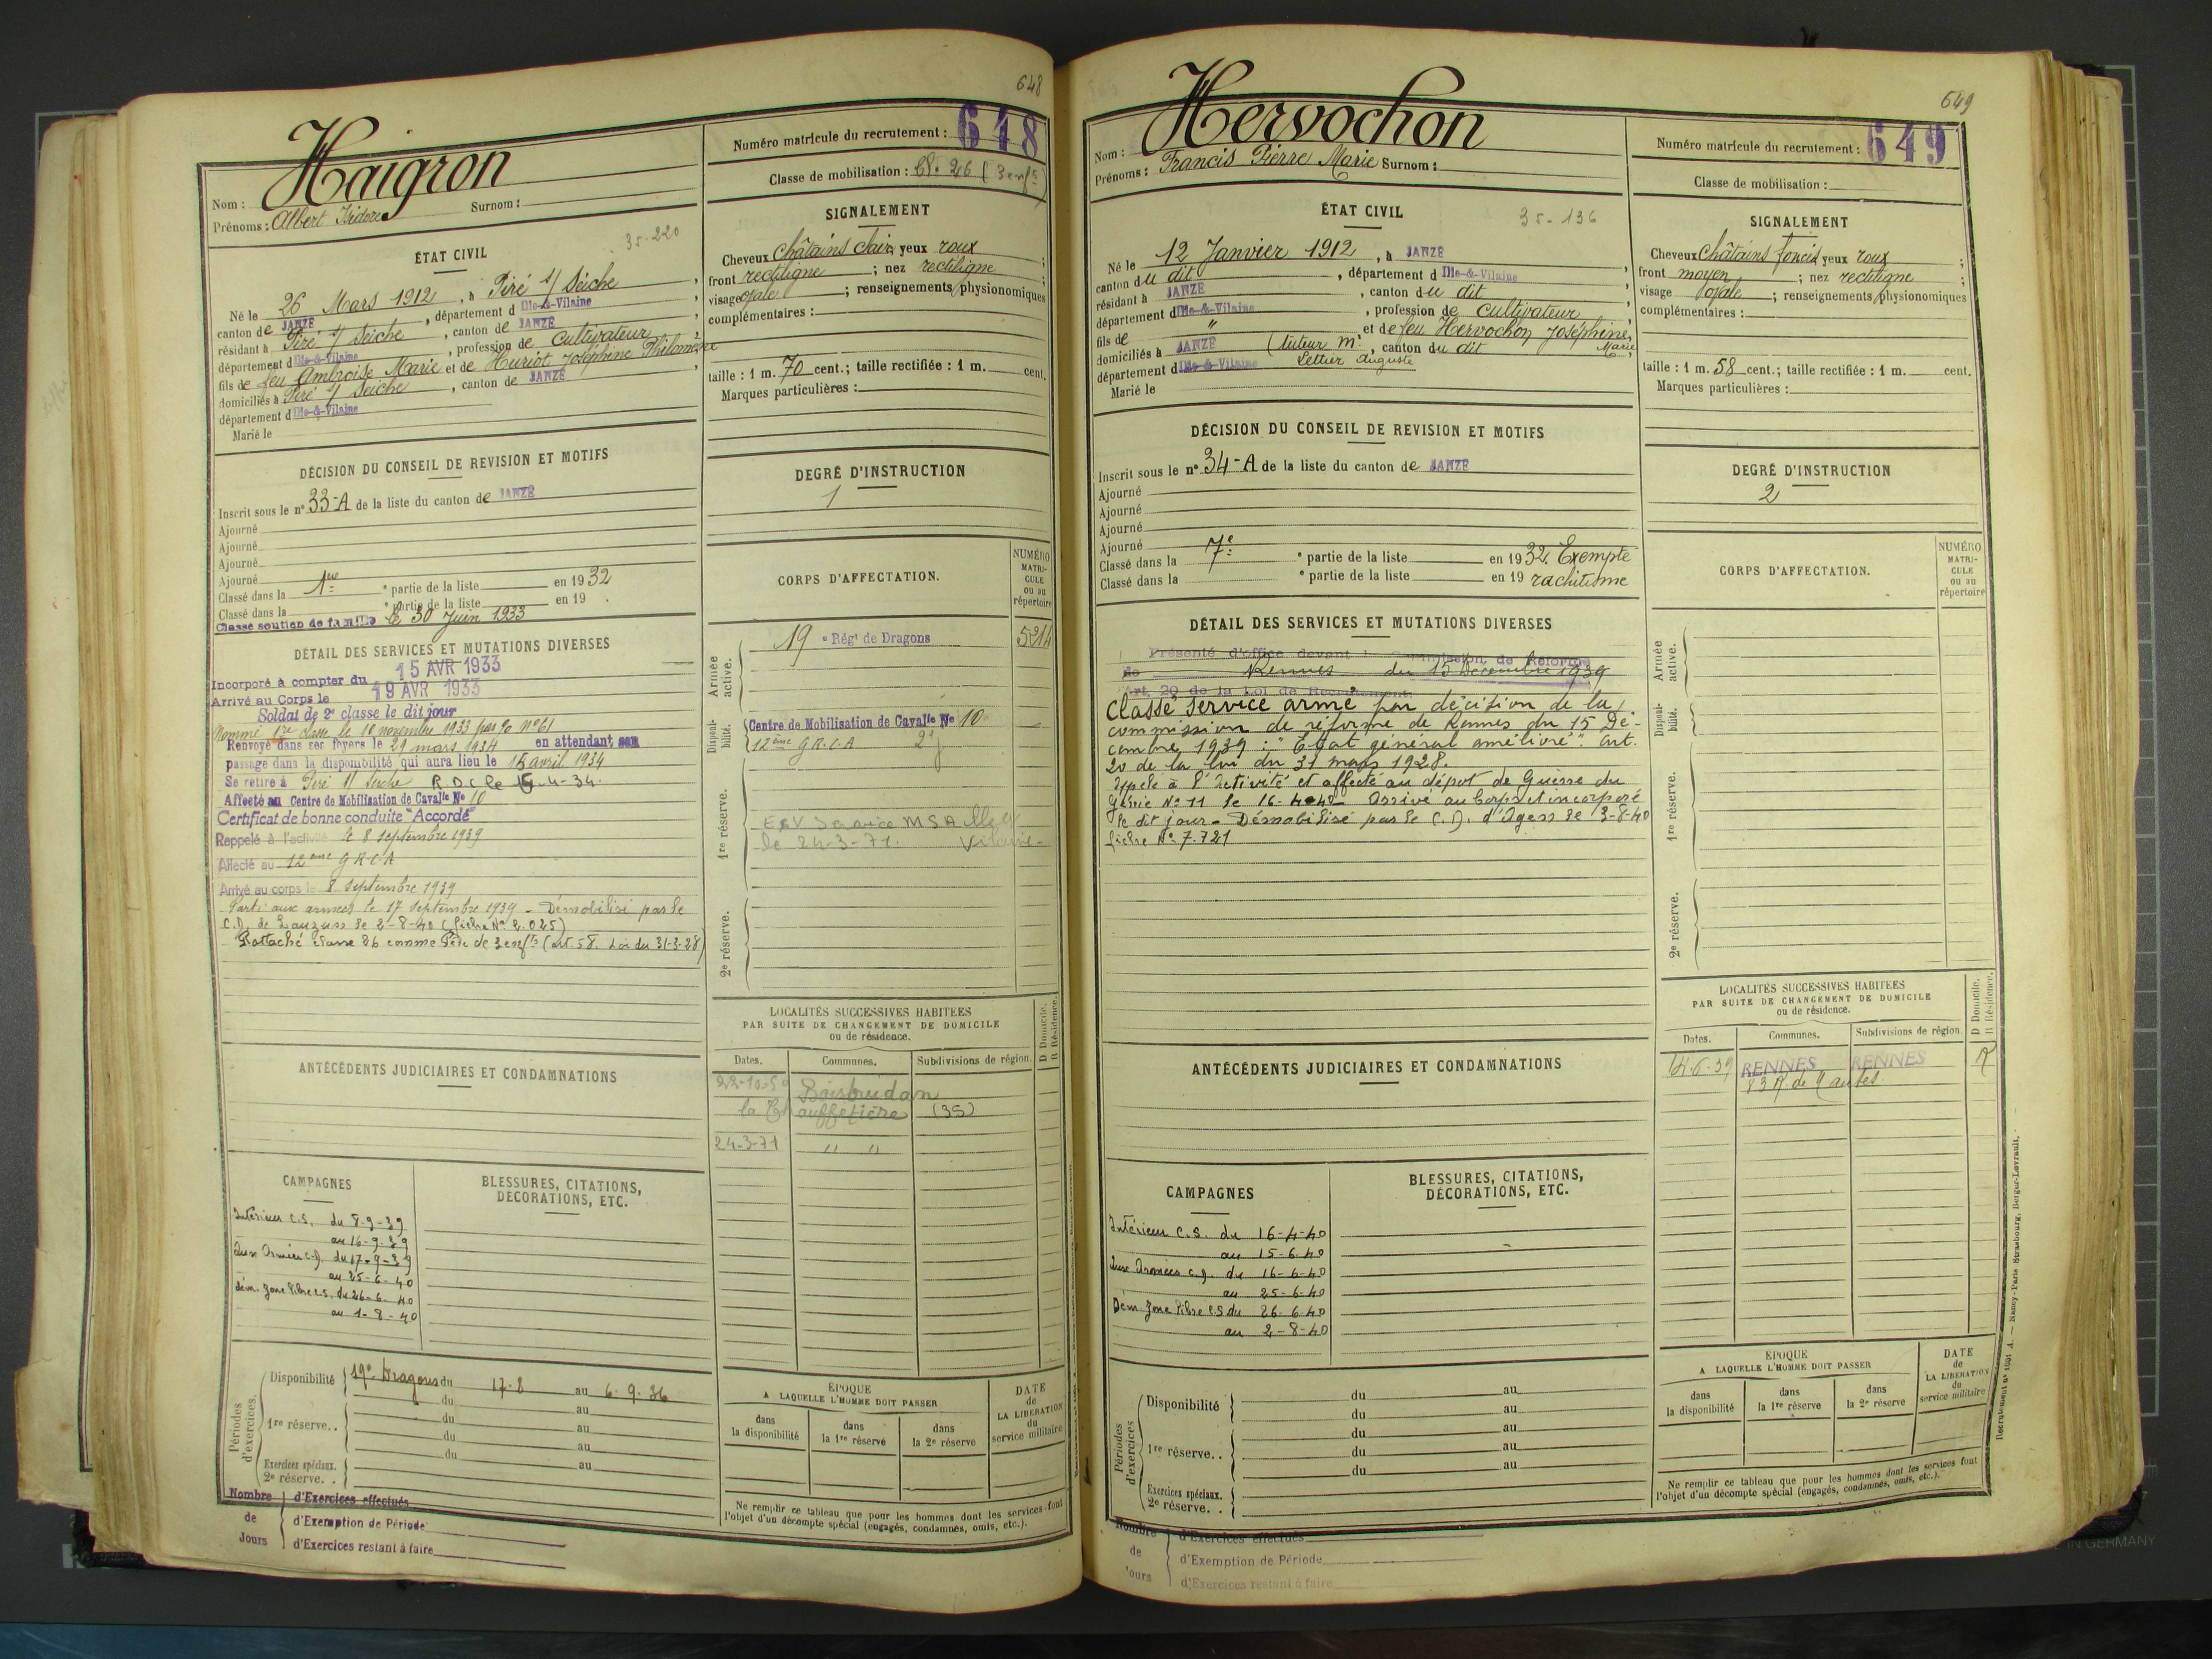 648
Haigron
Nom :
Prénoms : Albert Isidore Surnom :
Numéro matricule du recrutement : 648
Classe de mobilisation : Cl. 26 (3 enfts)
ÉTAT CIVIL
35-220
Né le 26 Mars 1912, à Piré s/ Seiche,
canton de JANZÉ, département d Ille-&-Vilaine,
résidant à Piré s/ Seiche, canton de JANZÉ,
département d Ille-&-Vilaine, profession de Cultivateur,
fils de feu Ambroise Marie et de Huriot Joséphine Philomène
domiciliés à Piré s/ Seiche, canton de JANZÉ,
département d Ille-&-Vilaine
Marié le
SIGNALEMENT
Cheveux châtains clair; yeux roux;
front rectiligne; nez rectiligne;
visage ovale; renseignements physionomiques
complémentaires :
taille : 1 m. 70 cent.; taille rectifiée : 1 m. cent.
Marques particulières :
DÉCISION DU CONSEIL DE REVISION ET MOTIFS
Inscrit sous le n° 33-A de la liste du canton de JANZÉ
Ajourné
Ajourné
Ajourné
Ajourné
Classé dans la 1re ° partie de la liste en 1932
Classé dans la ° partie de la liste en 19 .
Classé soutien de famille le 30 Juin 1933
DEGRÉ D'INSTRUCTION
1
DÉTAIL DES SERVICES ET MUTATIONS DIVERSES
Incorporé à compter du 15 AVR 1933
Arrivé au Corps le 19 AVR 1933
Soldat de 2e classe le dit jour
Nommé 1re classe le 10 novembre 1933 N° 61
Renvoyé dans ses foyers le 29 mars 1934 en attendant son
passage dans la disponibilité qui aura lieu le 15 avril 1934
Se retire à Piré s/ Seiche R.D.C le 15-4-34.
Affecté au Centre de Mobilisation de Cavalie N° 10
Certificat de bonne conduite "Accordé"
Rappelé à l'activité le 8 septembre 1939
Affecté au 12ème G R C A
Arrivé au corps le 8 septembre 1939
Parti aux armées le 17 septembre 1939 - Démobilisé par le
C.D. de Lauzun le 2-8-40 (fiche N° 2.025)
Rattaché classe 26 comme Père de 3 enfts (art. 58. Loi du 31-3-28)
CORPS D'AFFECTATION.
NUMÉRO MATRICULE ou au répertoire
Armée active.
19 e Régt de Dragons 5214
Disponibilité.
Centre de Mobilisation de Cavalie N° 10
12ème G.R.C.A
1re réserve.
Service MSA
le 24-3-71.
2e réserve.
LOCALITÉS SUCCESSIVES HABITÉES
PAR SUITE DE CHANGEMENT DE DOMICILE
ou de résidence.
Dates. Communes. Subdivisions de région. D Domicile. R Résidence.
22-10-59 Boistrudan
la Chauffetière (35)
24-3-71 " "
ANTÉCÉDENTS JUDICIAIRES ET CONDAMNATIONS
CAMPAGNES
Intérieur C.S. du 8-9-39
au 16-9-39
Aux Armées C.D. du 17-9-39
au 25-6-40
dém. zone libre C.S. du 26-6-40
au 1-8-40
BLESSURES, CITATIONS,
DÉCORATIONS, ETC.
Périodes d'exercices.
Disponibilité 19e Dragons du 17-8 au 6-9-36
du au
1re réserve.. du au
du au
Exercices spéciaux. du au
2e réserve. .
Nombre de Jours
d'Exercices effectués
d'Exemption de Période
d'Exercices restant à faire
ÉPOQUE
A LAQUELLE L'HOMME DOIT PASSER
dans la disponibilité
dans la 1re réserve
dans la 2e réserve
DATE de LA LIBÉRATION du service militaire
Ne remplir ce tableau que pour les hommes dont les services font
l'objet d'un décompte spécial (engagés, condamnés, omis, etc.).
649
Hervochon
Nom :
Prénoms : Francis Pierre Marie Surnom :
Numéro matricule du recrutement : 649
Classe de mobilisation :
ÉTAT CIVIL
35-136
Né le 12 Janvier 1912, à JANZÉ
canton du dit, département d Ille-&-Vilaine,
résidant à JANZÉ, canton du dit
département d Ille-&-Vilaine, profession de Cultivateur,
fils de " et de feu Hervochon Joséphine,
Marie
domiciliés à JANZÉ (tuteur m., canton du dit
département d Ille-&-Vilaine Lettier Auguste
Marié le
SIGNALEMENT
Cheveux châtains foncés yeux roux;
front moyen; nez rectiligne;
visage ovale; renseignements physionomiques
complémentaires :
taille : 1 m. 58 cent.; taille rectifiée : 1 m. cent.
Marques particulières :
DÉCISION DU CONSEIL DE REVISION ET MOTIFS
Inscrit sous le n° 34-A de la liste du canton de JANZÉ
Ajourné
Ajourné
Ajourné
Ajourné
Classé dans la 7e ° partie de la liste en 1932. Exempté
Classé dans la ° partie de la liste en 19 rachitisme
DEGRÉ D'INSTRUCTION
2
DÉTAIL DES SERVICES ET MUTATIONS DIVERSES
Présenté d'office devant la Commission de Réforme
de Rennes du 15 Décembre 1939
Art. 20 de la Loi de Recrutement.
Classé Service armé par décision de la
commission de réforme de Rennes du 15 Dé-
cembre 1939 : "Etat général amélioré". Art.
20 de la loi du 31 mars 1928.
Appelé à l'activité et affecté au dépôt de Guerre du
Génie N° 11 le 16-4-40 - Arrivé au Corps et incorporé
le dit jour - Démobilisé par le C.D. d'Agen le 3-8-40
fiche N° 7.721
CORPS D'AFFECTATION.
NUMÉRO MATRICULE ou au répertoire
Armée active.
Disponibilité.
1re réserve.
2e réserve.
LOCALITÉS SUCCESSIVES HABITÉES
PAR SUITE DE CHANGEMENT DE DOMICILE
ou de résidence.
Dates. Communes. Subdivisions de région. D Domicile. R Résidence.
14.6.39 RENNES RENNES R
83 R. de Nantes
ANTÉCÉDENTS JUDICIAIRES ET CONDAMNATIONS
CAMPAGNES
Intérieur C.S. du 16-4-40
au 15-6-40
Aux Armées C.D. du 16-6-40
au 25-6-40
Dém. Zone libre C.S du 26-6-40
au 2-8-40
BLESSURES, CITATIONS,
DÉCORATIONS, ETC.
Périodes d'exercices
Disponibilité du au
du au
1re réserve.. du au
du au
Exercices spéciaux. du au
2e réserve. .
Nombre de Jours
d'Exercices effectués
d'Exemption de Période
d'Exercices restant à faire
ÉPOQUE
A LAQUELLE L'HOMME DOIT PASSER
dans la disponibilité
dans la 1re réserve
dans la 2e réserve
DATE de LA LIBÉRATION du service militaire
Ne remplir ce tableau que pour les hommes dont les services font
l'objet d'un décompte spécial (engagés, condamnés, omis, etc.).
Nancy-Paris-Strasbourg, Berger-Levrault.
IN GERMANY